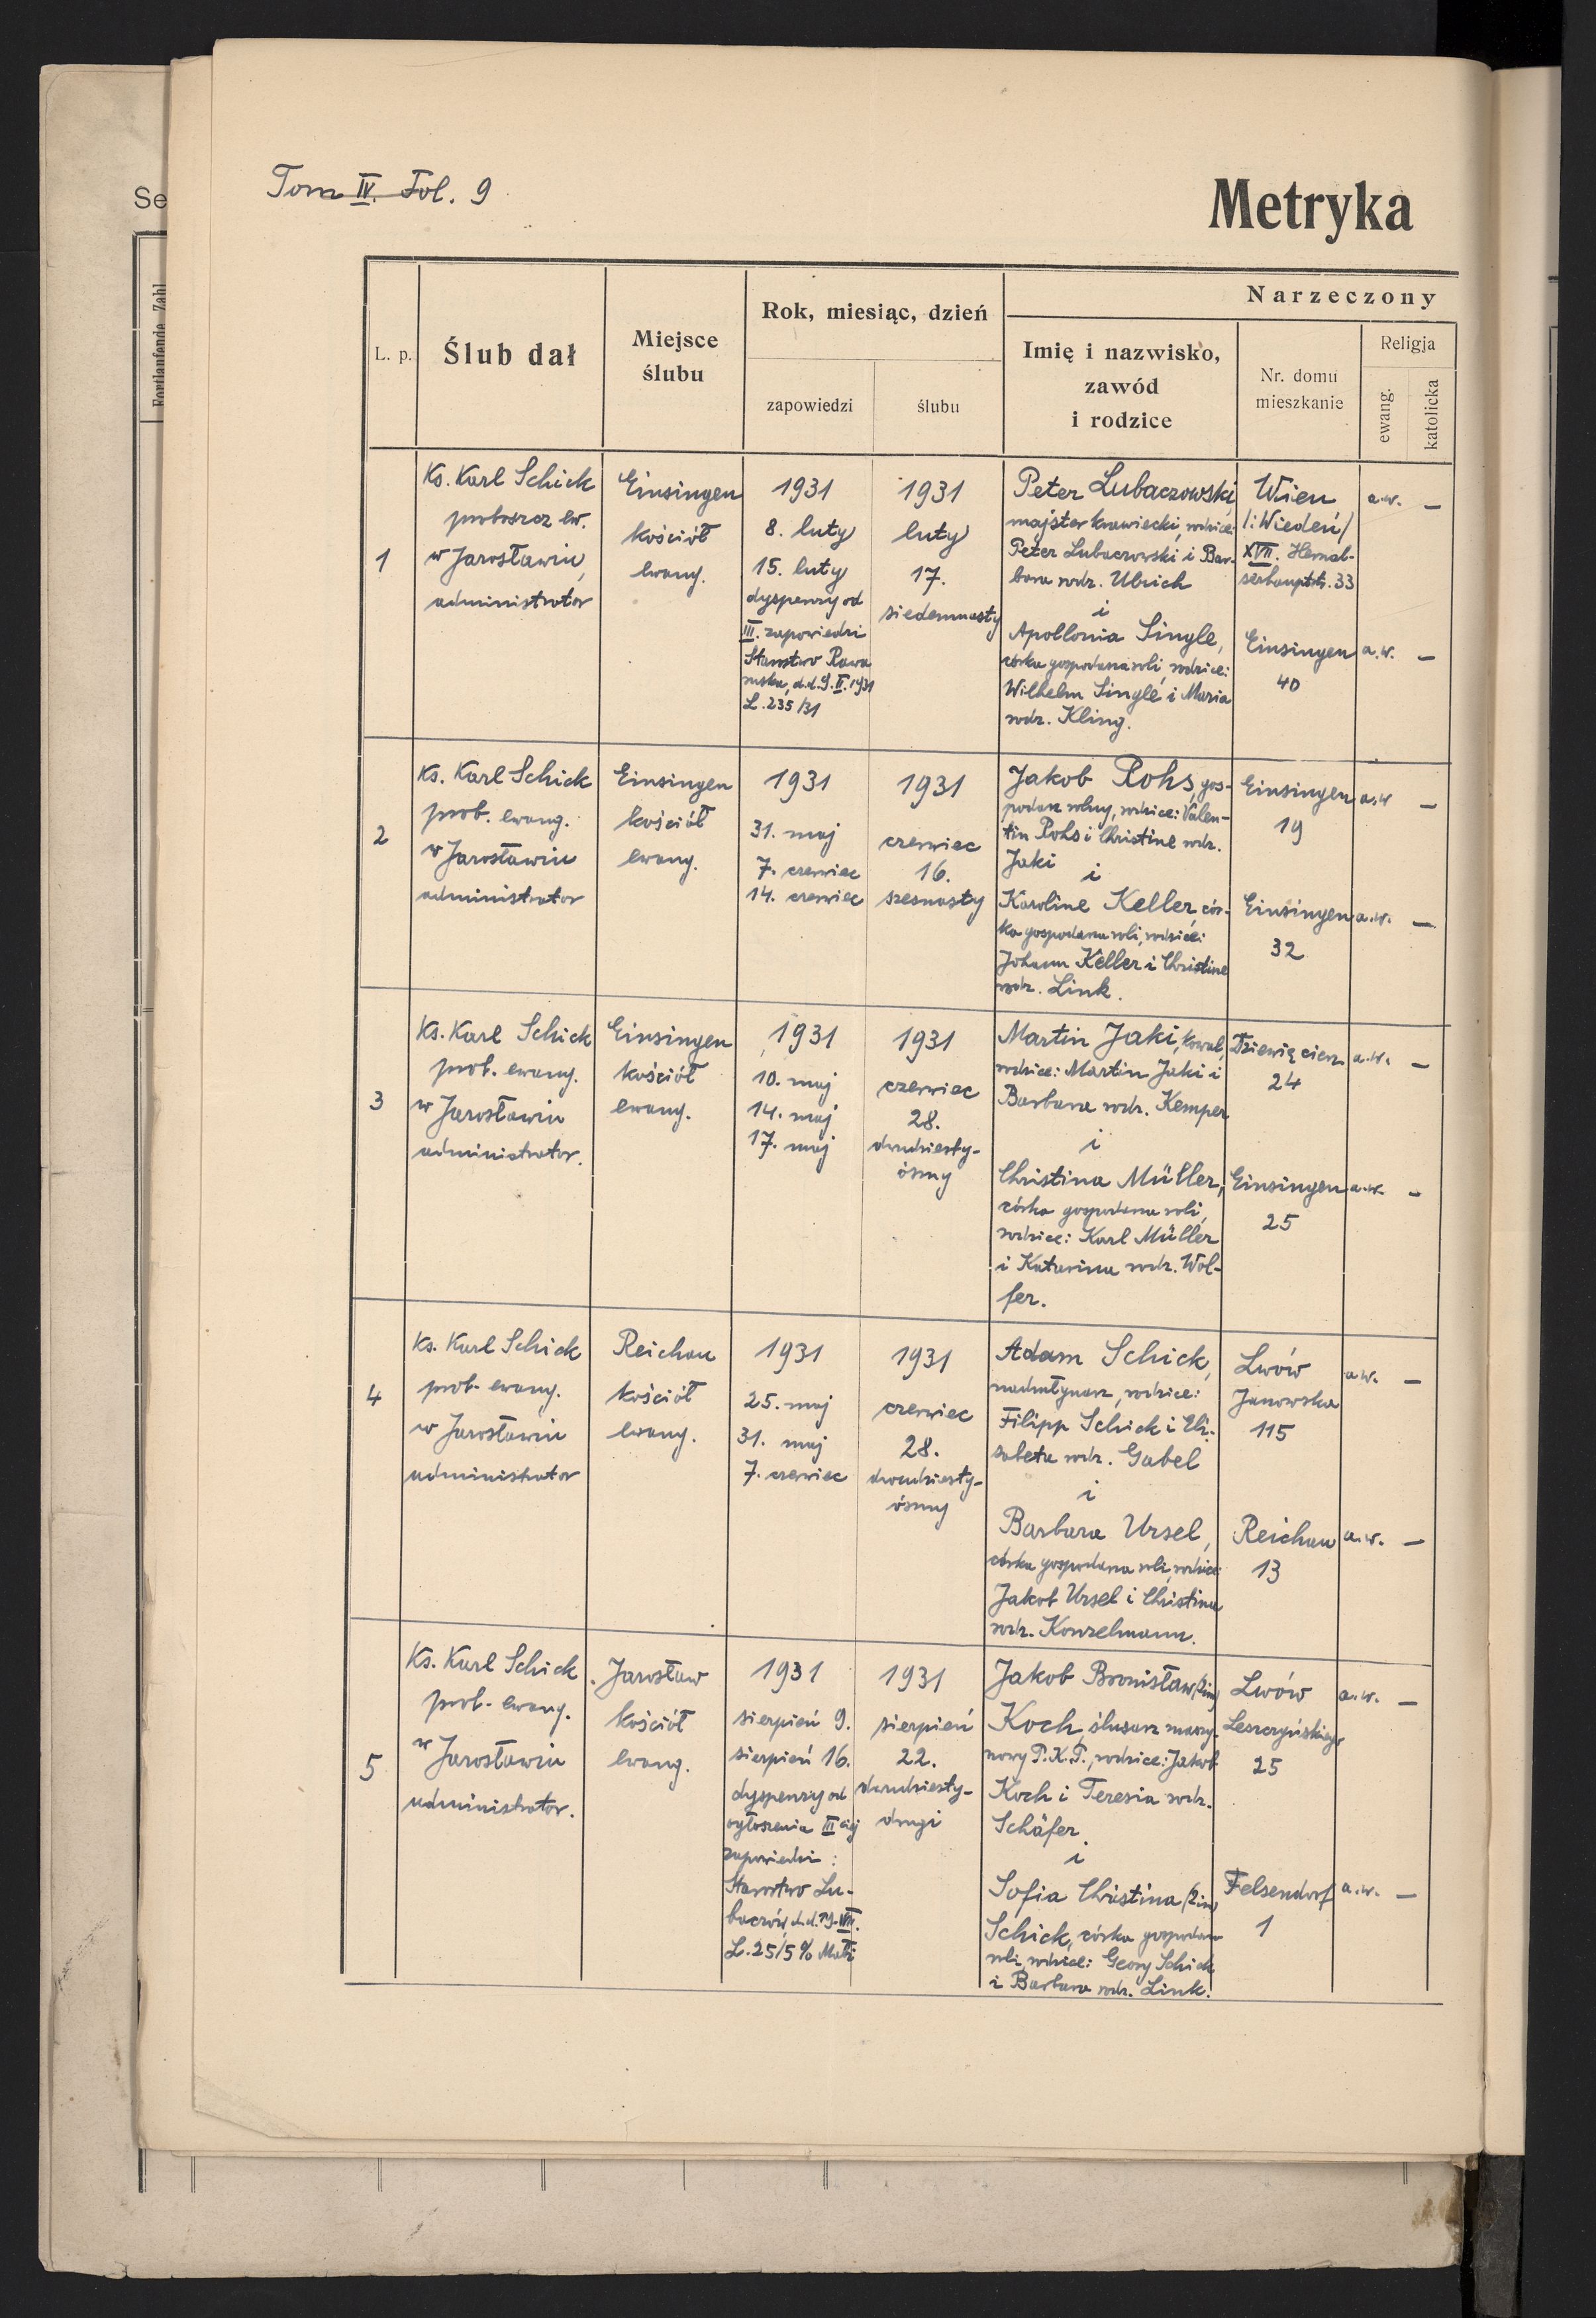 Tom IV. Fol. 9
Metryka
Se
Fortlaufende Zahl
L. p.
Ślub dał
Miejsce
ślubu
Rok, miesiąc, dzień
zapowiedzi
ślubu
Narzeczony
Imię i nazwisko,
zawód
i rodzice
Nr. domu
mieszkanie
Religja
ewang.
katolicka
1
Ks. Karl Schick
proboszcz ew.
w Jarosławiu,
administrator
Einsingen
kościół
ewang.
1931
8. luty
15. luty
dyspenzy od
III. zapowiedzi
Starostwo Rawa
ruska, d.d. 9. II. 1931
L. 235/31
1931
luty
17.
siedemnasty
Peter Lubaczowski,
majster krawiecki, rodzice:
Peter Lubaczowski i Bar-
bara rodz. Ulrich
i
Apollonia Single,
córka gospodarza roli, rodzice:
Wilhelm Single i Maria
rodz. Kling.
Wien
/:Wiedeń/
XVII. Hernal-
serhauptstr. 33
Einsingen
40
a.w. —
a.w. —
2
Ks. Karl Schick
prob. ewang.
w Jarosławiu
administrator
Einsingen
kościół
ewang.
1931
31. maj
7. czerwiec
14. czerwiec
1931
czerwiec
16.
szesnasty
Jakob Rohs, gos-
podarz rolny, rodzice: Valen-
tin Rohs i Christine rodz.
Jaki
i
Karoline Keller, cór-
ka gospodarza roli, rodzice:
Johann Keller i Christine
rodz. Link.
Einsingen
19
Einsingen
32
a.w —
a.w. —
3
Ks. Karl Schick
prob. ewang.
w Jarosławiu
administrator.
Einsingen
kościół
ewang.
1931
10. maj
14. maj
17. maj
1931
czerwiec
28.
dwudziesty-
ósmy
Martin Jaki, kowal,
rodzice: Martin Jaki i
Barbara rodz. Kemper
i
Christina Müller,
córka gospodarza roli,
rodzice: Karl Müller
i Katarina rodz. Wol-
fer.
Dziewięcierz
24
Einsingen
25
a.w. —
a.w. —
4
Ks. Karl Schick
prob. ewang.
w Jarosławiu
administrator
Reichau
kościół
ewang.
1931
25. maj
31. maj
7. czerwiec
1931
czerwiec
28.
dwudziesty-
ósmy
Adam Schick,
rodzice:
Filipp Schick i Eli-
sabeta rodz. Gabel
i
Barbara Ursel,
córka gospodarza roli, rodzice:
Jakob Ursel i Christina
rodz. Konzelmann.
Lwów
Janowska
115
Reichau
13
a.w. —
a.w. —
5
Ks. Karl Schick
prob. ewang.
w Jarosławiu
administrator.
Jarosław
kościół
ewang.
1931
sierpień 9.
sierpień 16.
dyspenzy od
ogłoszenia III ciej
zapowiedzi:
Starostwo Lu-
baczów, d.d. 19. VIII.
L. 25/5
1931
sierpień
22.
dwudziesty-
drugi
Jakob Bronisław /2im/
Koch, ślusarz maszy-
nowy P.K.P., rodzice: Jakob
Koch i Teresia rodz.
Schäfer
i
Sofia Christina /2im/
Schick, córka gospodarza
roli, rodzice: Georg Schick
i Barbara rodz. Link.
Lwów
Leszczyńskiego
25
Felsendorf
1
a.w. —
a.w. —